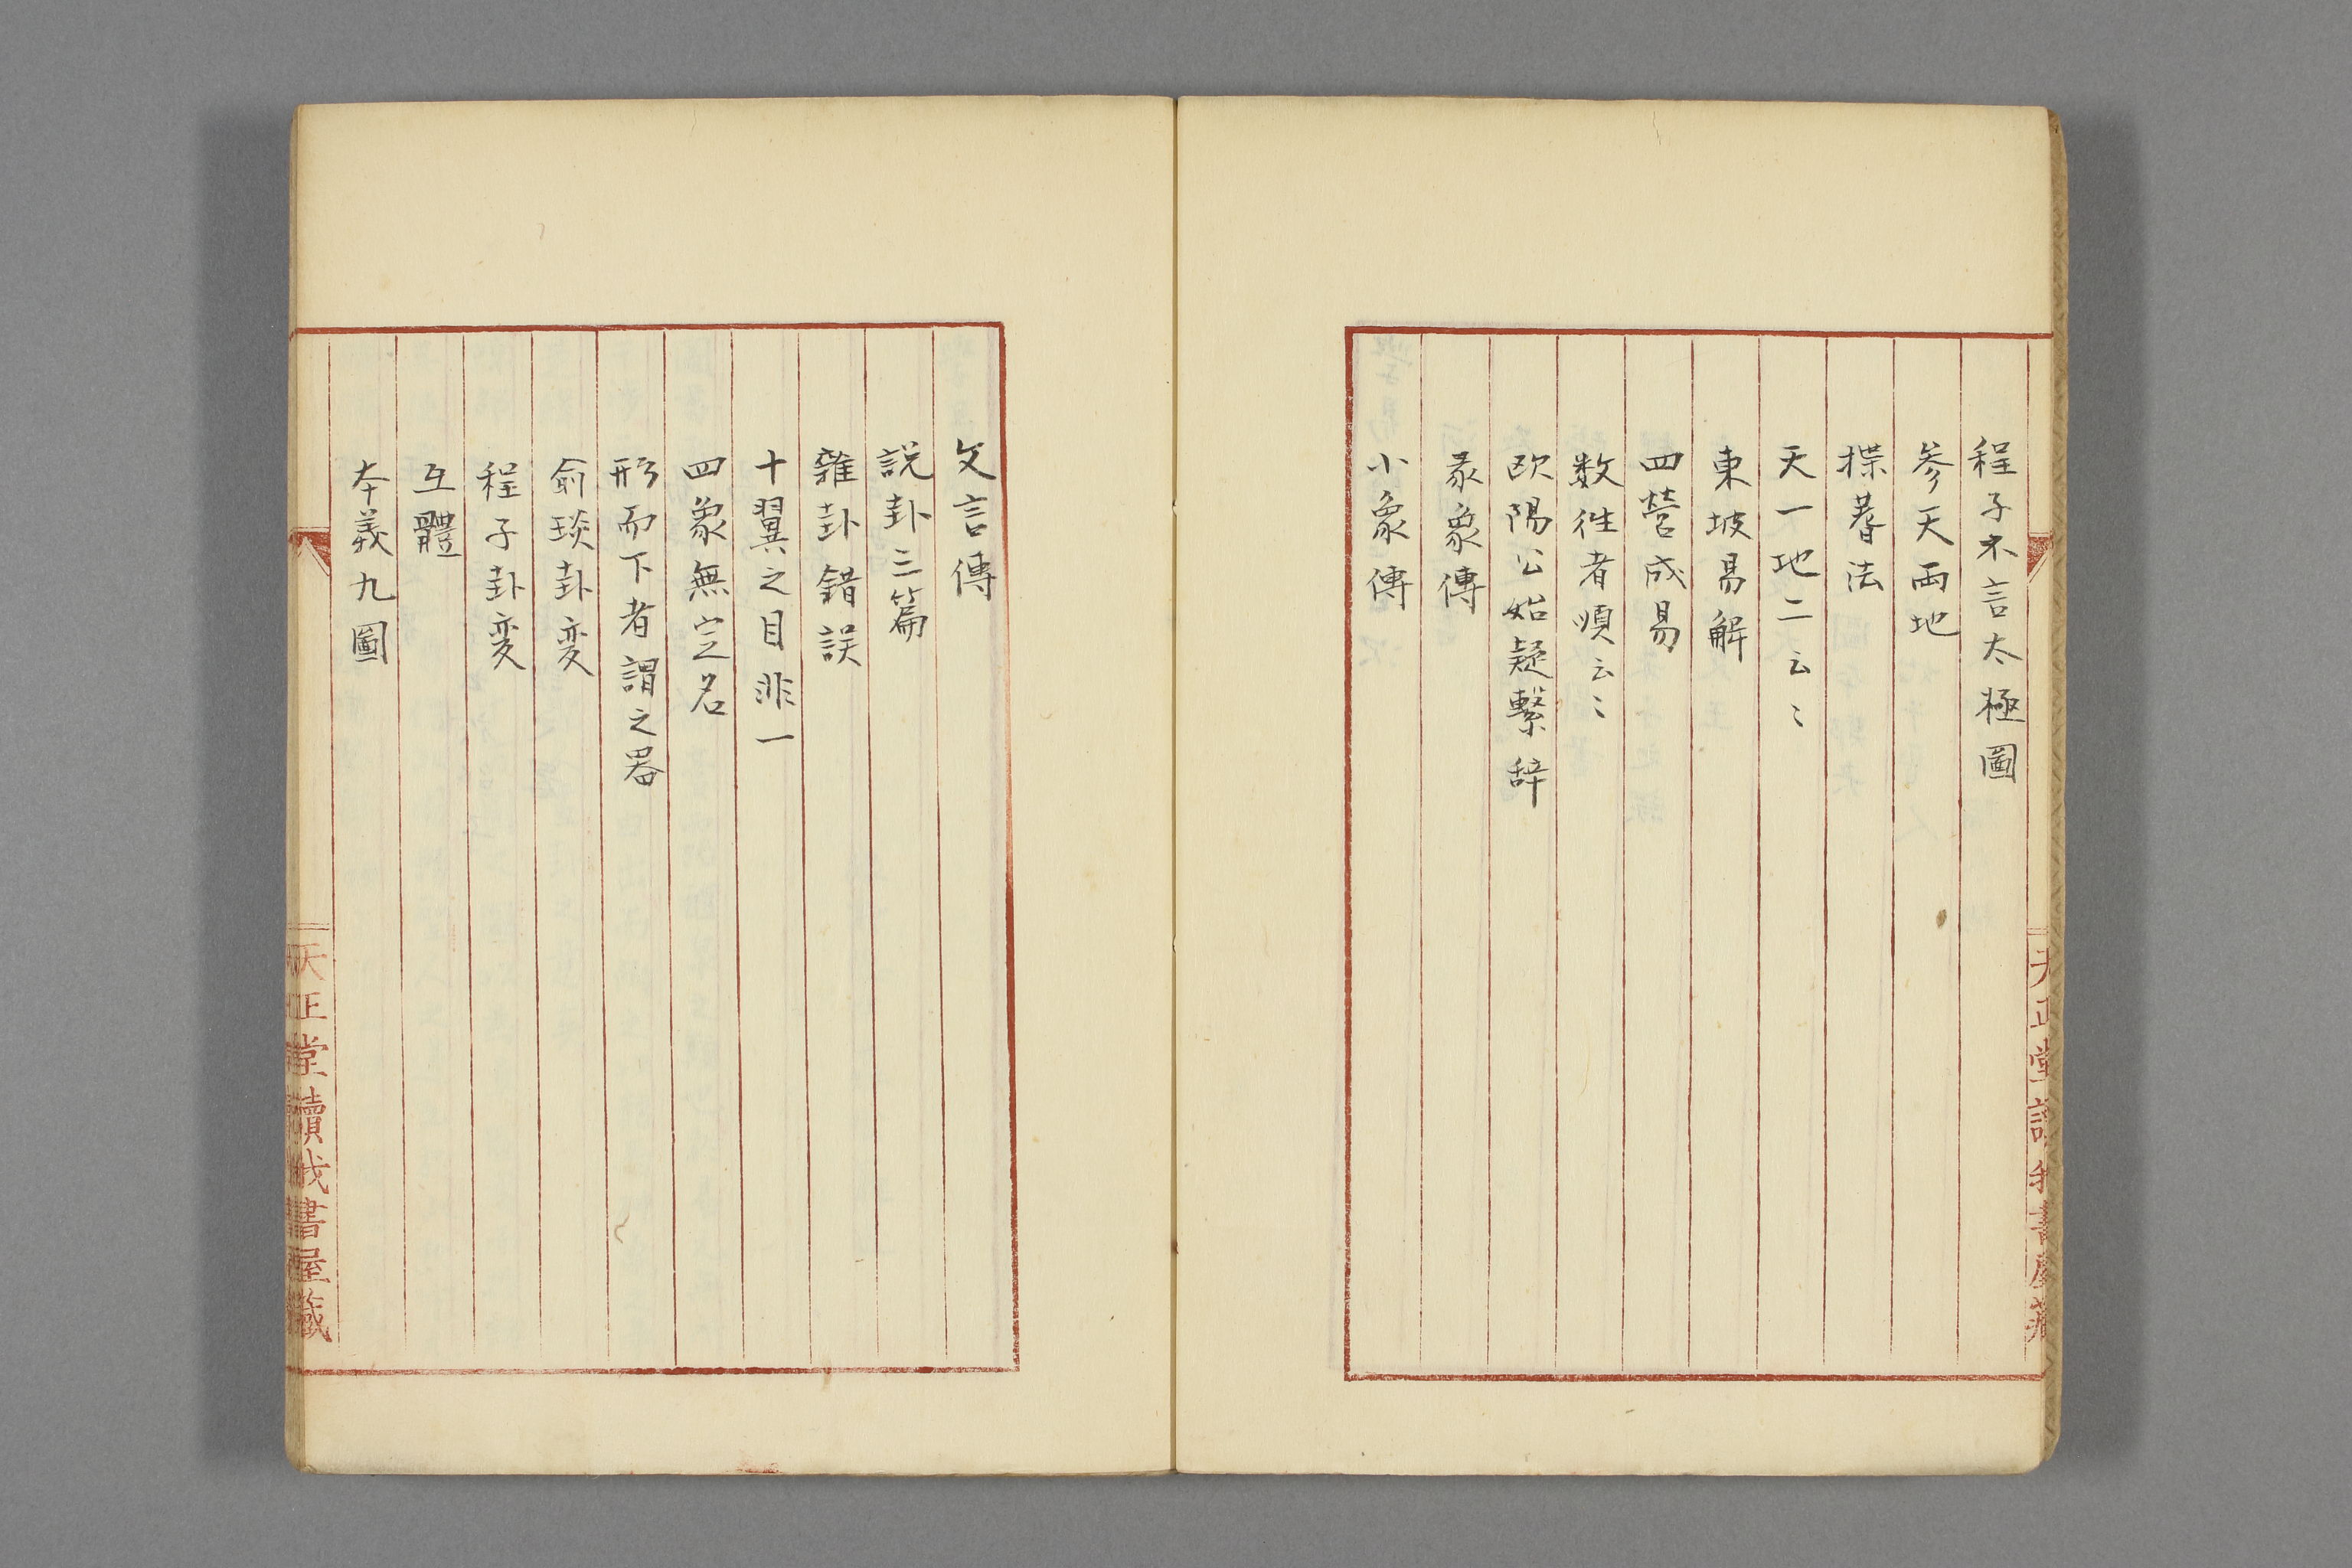 程子不言太極圖
參天両地
揲蓍法
天一地二云〻
東坡易解
四營成易
数徃者順云〻
欧陽公始疑繫辞
彖象傳
小象傳
文言傳
説卦三篇
雜卦錯誤
十翼之目非一
四象無定名
形而下者謂之器
俞琰卦変
程子卦変
互體
本義九圖
天正堂讀我書屋藏